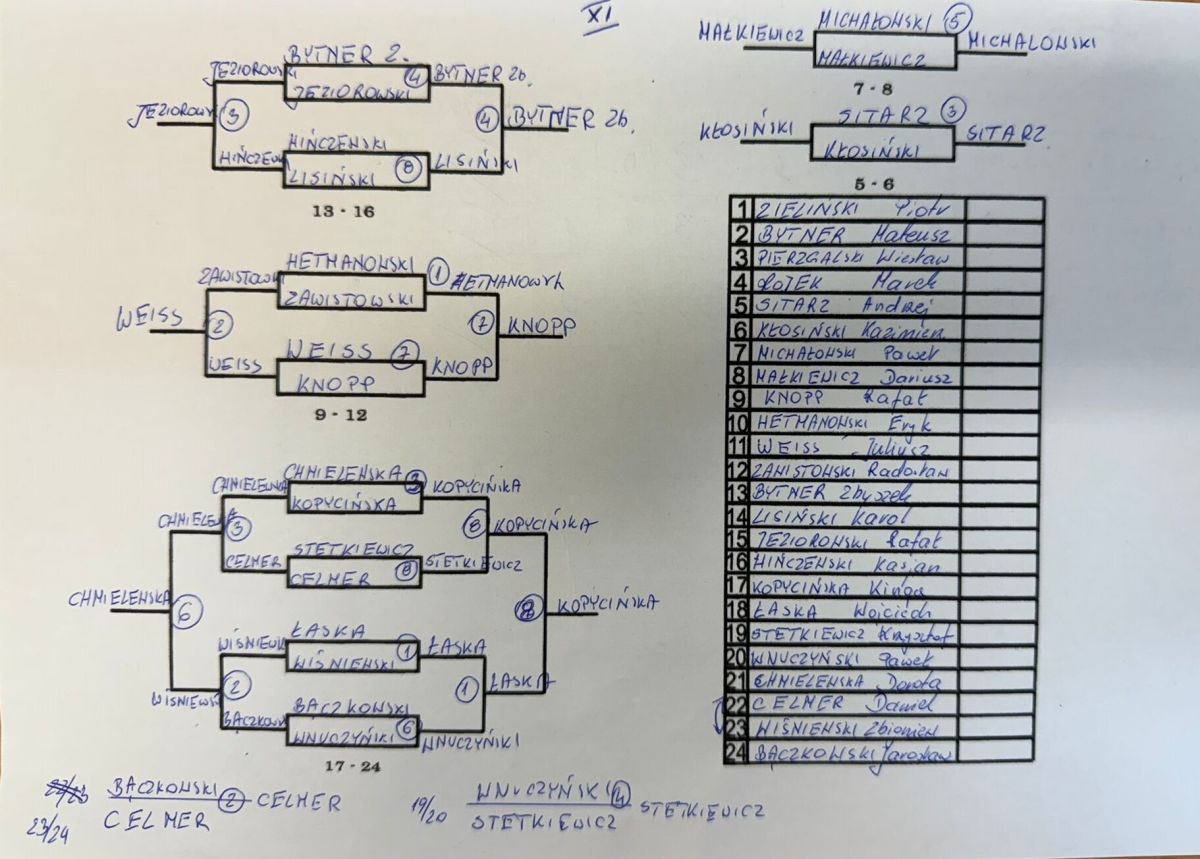 XI
BYTNER 2.
JEZIOROWSKI
4
BYTNER 2b.
JEZIOROWSKI
JEZIOROWSKI
3
4
BYTNER 2b.
HIŃCZEWSKI
HIŃCZEW
LISIŃSKI
8
LISIŃSKI
13 - 16
HETMANOWSKI
ZAWISTOWSKI
1
HETMANOWSK
ZAWISTOWSKI
WEISS
2
7
KNOPP
WEISS
7
WEISS
KNOPP
KNOPP
9 - 12
CHMIELEWSKA
CHMIELEWSKA
3
KOPYCIŃSKA
KOPYCIŃSKA
CHMIELEWSKA
3
8
KOPYCIŃSKA
STETKIEWICZ
CELMER
CELMER
8
STETKIEWICZ
CHMIELEWSKA
6
8
KOPYCIŃSKA
ŁASKA
WIŚNIEWSKI
WIŚNIEWSKI
1
ŁASKA
WIŚNIEWSKI
2
1
ŁASKA
BĄCZKOWSKI
BĄCZKOWSKI
WNUCZYŃSKI
6
WNUCZYŃSKI
17 - 24
23/24
BĄCZKOWSKI
2
CELMER
CELMER
19/20
WNUCZYŃSKI
4
STETKIEWICZ
STETKIEWICZ
MAŁKIEWICZ
MICHAŁOWSKI
5
MICHALOWSKI
MAŁKIEWICZ
7 - 8
KŁOSIŃSKI
SITARZ
3
SITARZ
KŁOSIŃSKI
5 - 6
1 ZIELIŃSKI Piotr
2 BYTNER Mateusz
3 PIERZGALSKI Wiesław
4 ŁOJEK Marek
5 SITARZ Andrzej
6 KŁOSIŃSKI Kazimierz
7 MICHAŁOWSKI Paweł
8 MAŁKIEWICZ Dariusz
9 KNOPP Rafał
10 HETMANOWSKI Eryk
11 WEISS Juliusz
12 ZAWISTOWSKI Radosław
13 BYTNER Zbyszek
14 LISIŃSKI Karol
15 JEZIOROWSKI Rafał
16 HIŃCZEWSKI Kasjan
17 KOPYCIŃSKA Kinga
18 ŁASKA Wojciech
19 STETKIEWICZ Krzysztof
20 WNUCZYŃSKI Paweł
21 CHMIELEWSKA Dorota
22 CELMER Daniel
23 WIŚNIEWSKI Zbigniew
24 BĄCZKOWSKI Jarosław